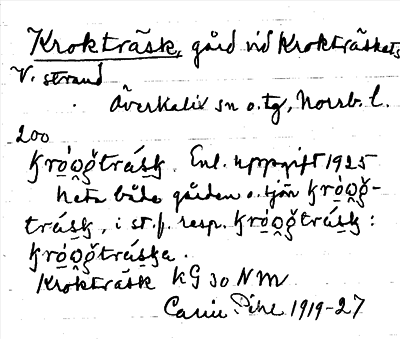 Krokträsk, gård vid Krokträskets
V. strand
Överkalix sn o. tg, Norrb. l.
200
kro̯ǥträsk. Enl. uppgift 1925
heta både gården o. sjön kro̯ǥ-
träsk, i st. f. resp. kro̯ǥträsk:
kro̯ǥträska.
Krokträsk KG 30 NM
Carin Pihl 1919-27